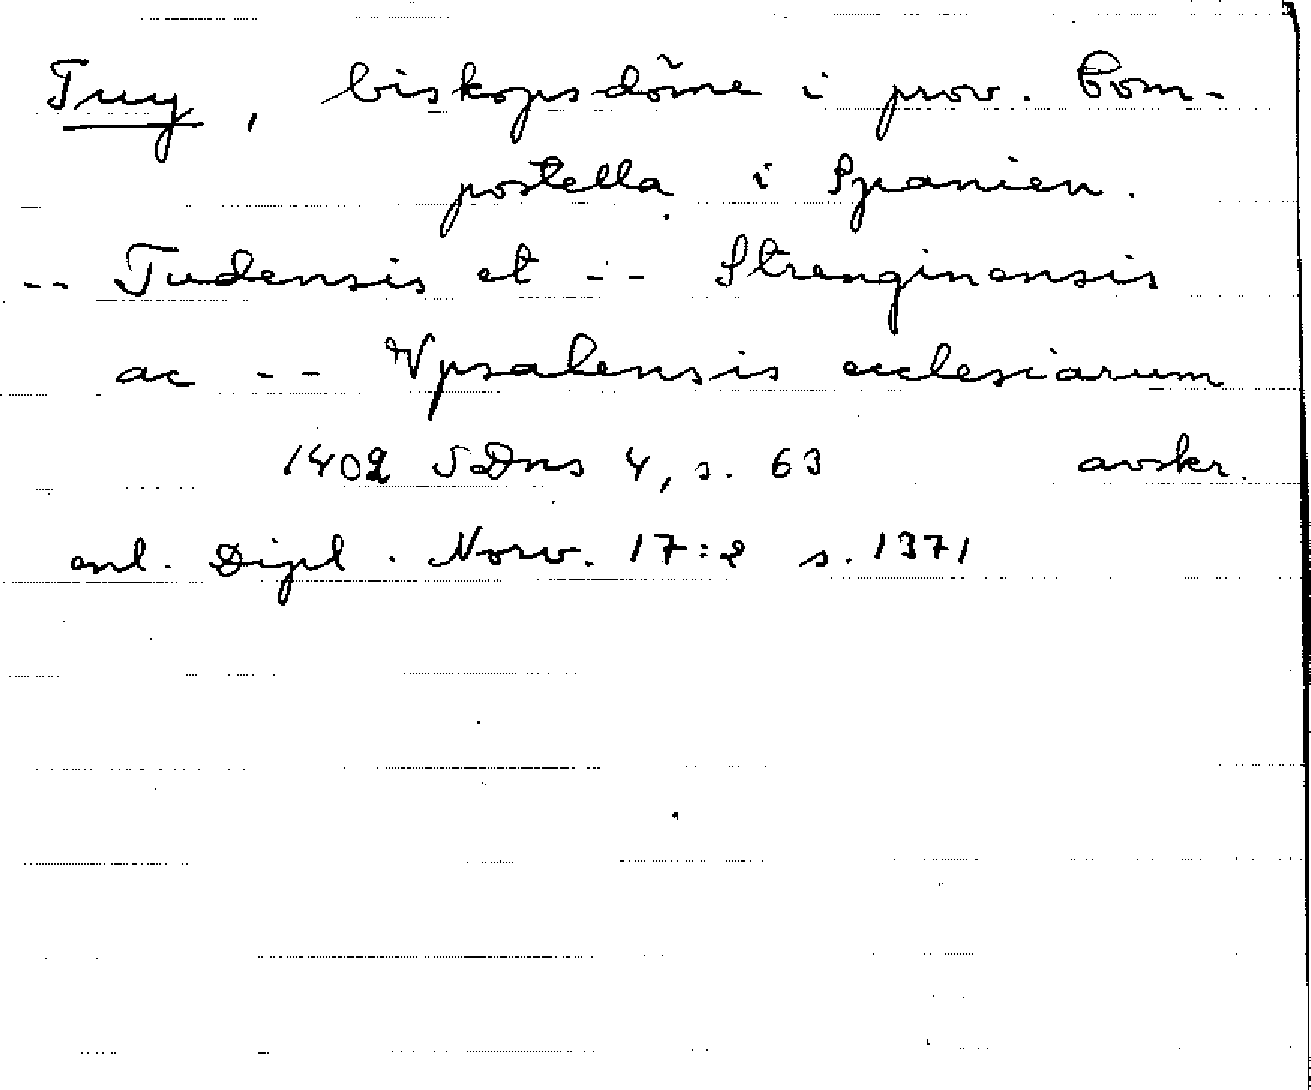 Tuy, biskopsdöme i prov. Com-
postella i Spanien.
-- Tudensis et -- Strenginensis
ac -- Vpsalensis ecclesiarum
1402 SDns 4, s. 63 avskr.
enl. Dipl. Norv. 17:2 s. 1371